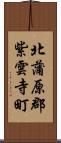 北蒲原郡
紫雲寺町